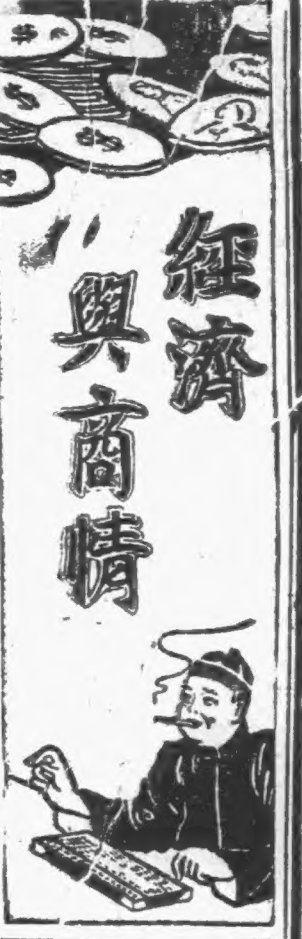 經濟
與商情
$
$
$
$